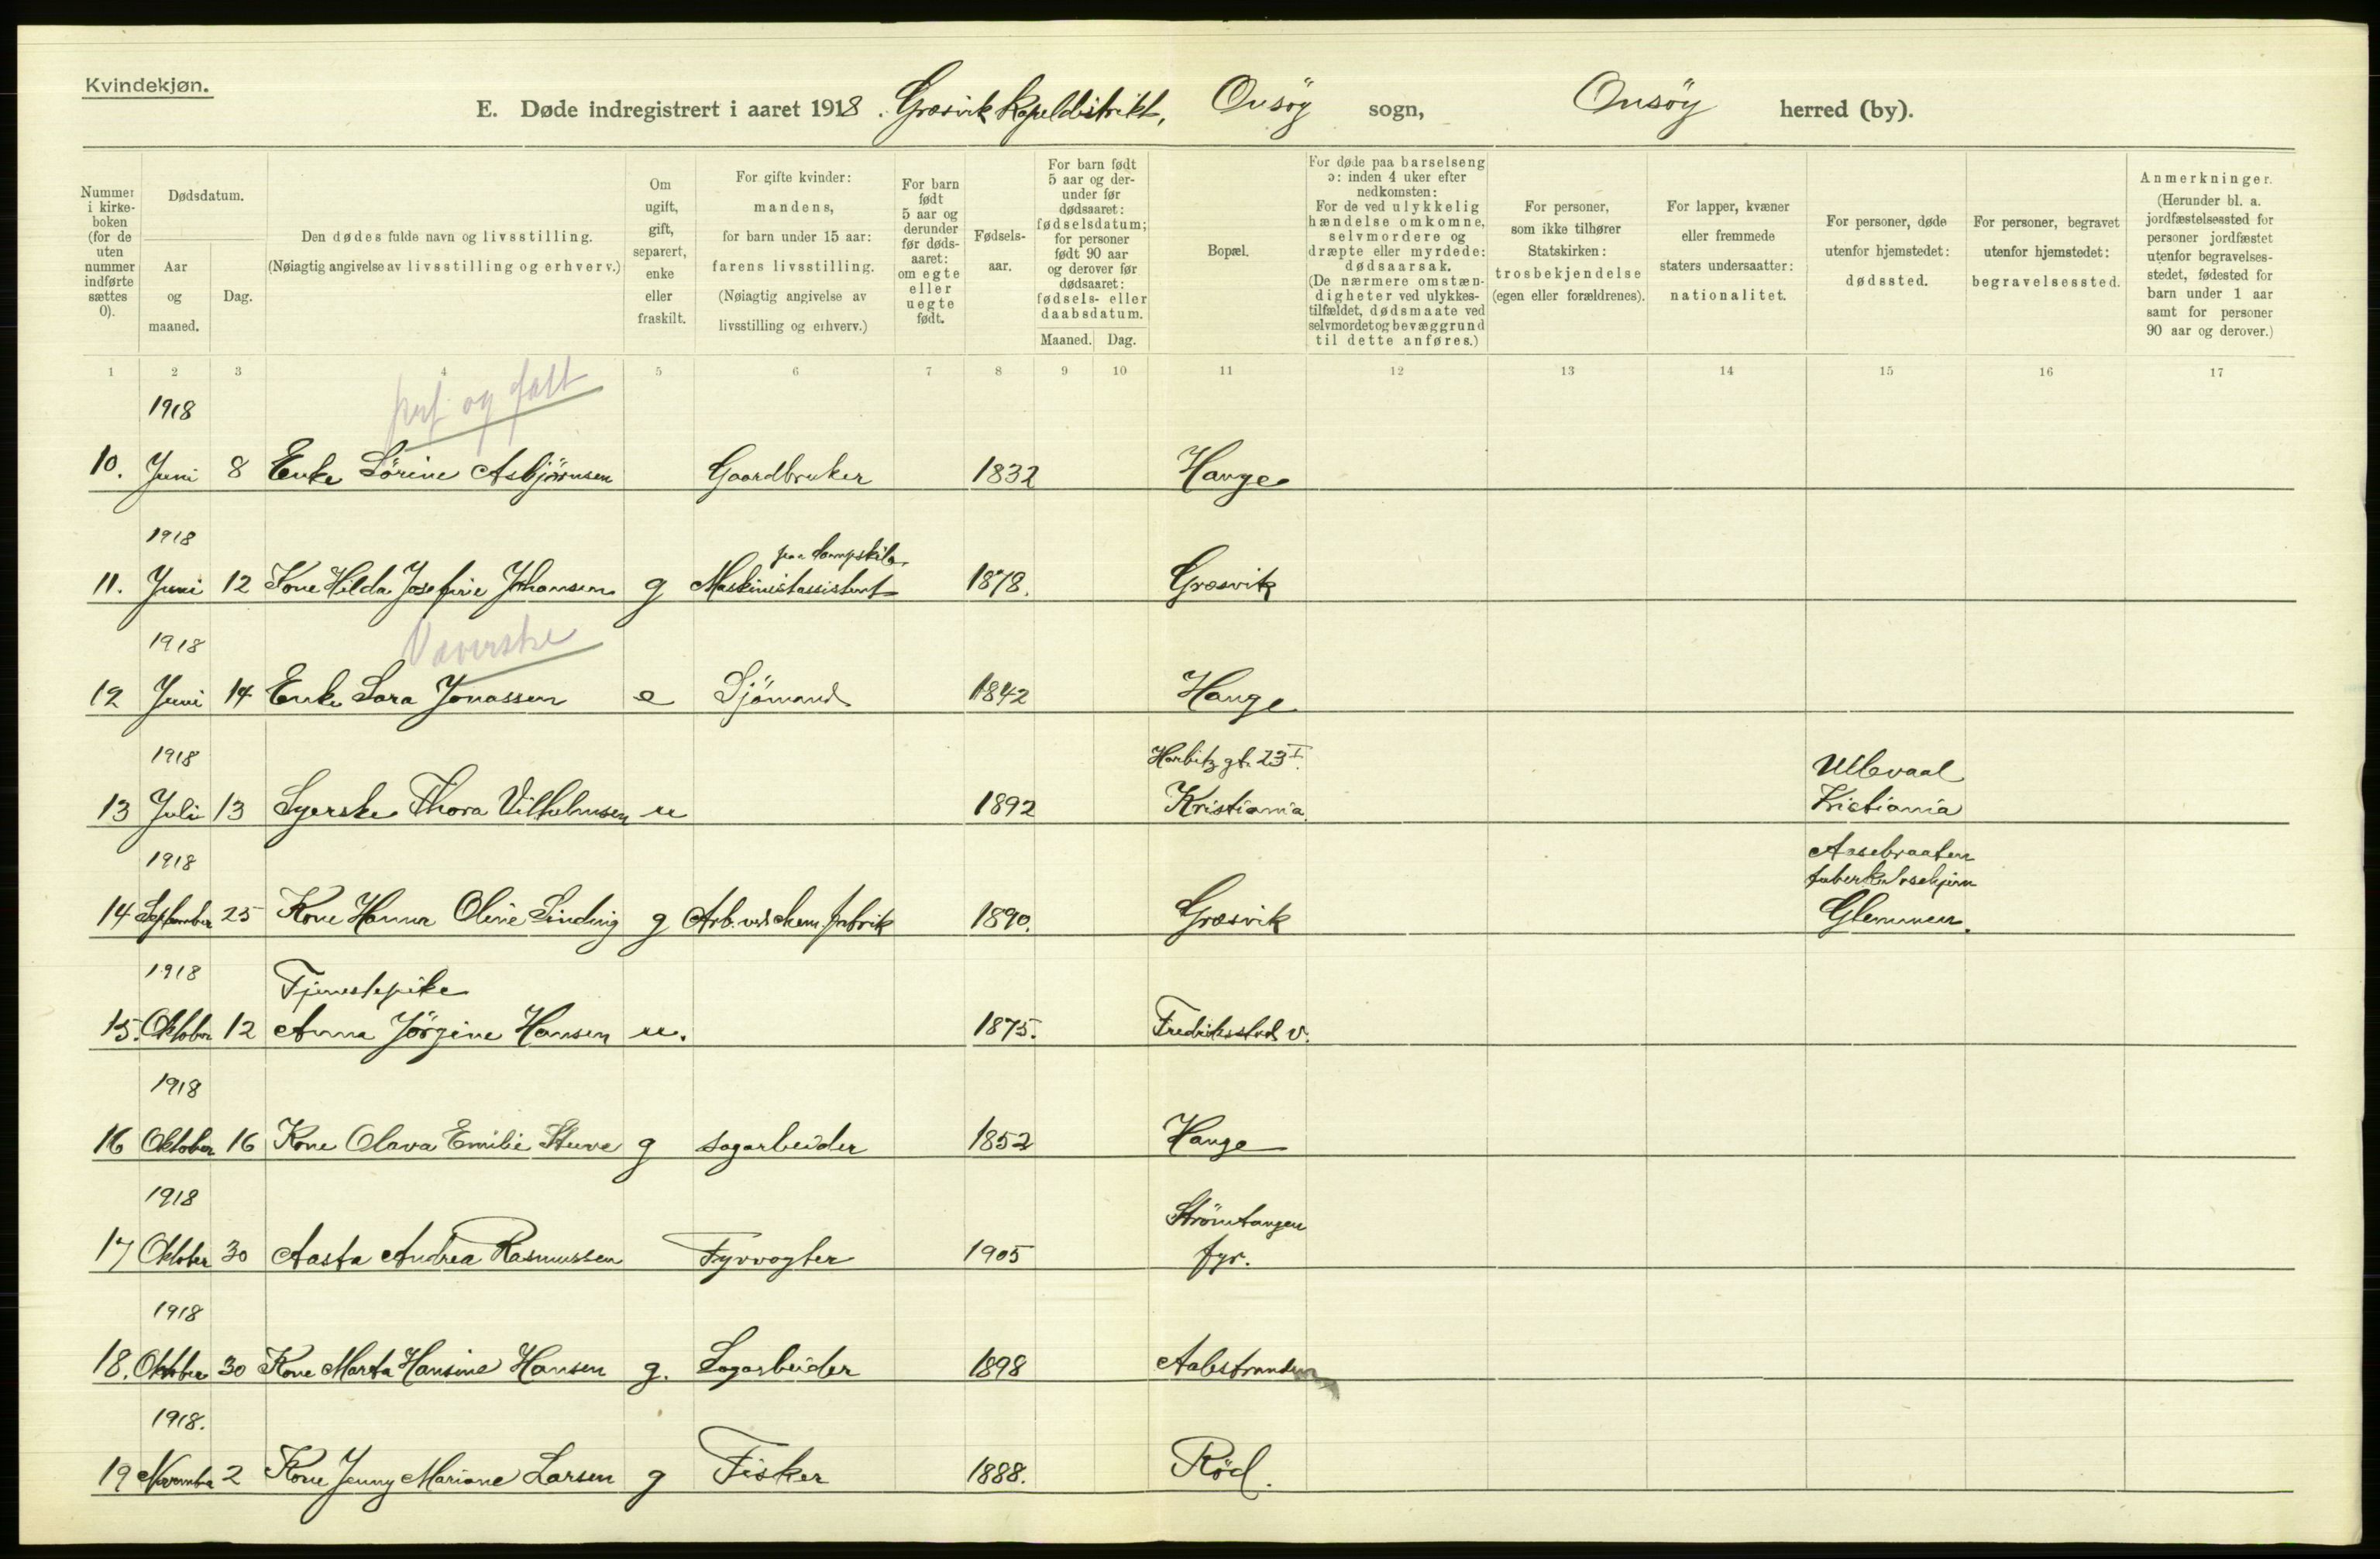 Kvindekjøn.
E. Døde indregistrert i aaret 1918. Græsvik Kapeldistrikt, Onsöy sogn, Onsöy herred (by).
Nummer i kirkeboken (for de uten nummer indførte sættes 0).
Dødsdatum.
Aar og maaned.
Dag.
Den dødes fulde navn og livsstilling.
(Nøiagtig angivelse av livsstilling og erhverv.)
Om ugift, gift, separert, enke eller fraskilt.
For gifte kvinder: mandens, for barn under 15 aar: farens livsstilling.
(Nøiagtig angivelse av livsstilling og erhverv.)
For barn født 5 aar og derunder før dødsaaret: om egte eller uegte født.
Fødselsaar.
For barn født 5 aar og derunder før dødsaaret: fødselsdatum; for personer født 90 aar og derover før dødsaaret: fødsels- eller daabsdatum.
Maaned. Dag.
Bopæl.
For døde paa barselseng ɔ: inden 4 uker efter nedkomsten:
For de ved ulykkelig hændelse omkomne, selvmordere og dræpte eller myrdede: dødsaarsak.
(De nærmere omstændigheter ved ulykkestilfældet, dødsmaate ved selvmordet og bevæggrund til dette anføres.)
For personer, som ikke tilhører Statskirken: trosbekjendelse (egen eller forældrenes).
For lapper, kvæner eller fremmede staters undersaatter: nationalitet.
For personer, døde utenfor hjemstedet: dødssted.
For personer, begravet utenfor hjemstedet: begravelsessted.
Anmerkninger.
(Herunder bl. a. jordfæstelsessted for personer jordfæstet utenfor begravelsesstedet, fødested for barn under 1 aar samt for personer 90 aar og derover.)
1 2 3 4 5 6 7 8 9 10 11 12 13 14 15 16 17
1918 og
10. Juni 8 Enke Sörine Asbjörnsen Gaardbruker 1832 Hauge
1918 paa dampskib.
11. Juni 12 Kone Hilda Josefine Johansen g Maskinistassistent 1878. Græsvik
1918 Væverske
12 Juni 14 Enke Sara Jonassen e Sjömand 1842 Hauge
1918 Harbitz gt. 23 I. Ullevaal
13 Juli 13 Syerske Thora Vilhelmsen u 1892 Kristiania. Kristiania
1918 Aasebraaten
tuberkulosehjem
14 September 25 Kone Hanna Oline Sinding g Arb. ved chem. fabrik 1890. Græsvik Glemmen.
1918 Tjenestepike
15. Oktober 12 Anna Jörgine Hansen u. 1875. Fredriksstad v.
1918
16 Oktober 16 Kone Olava Emilie Stuve g sagarbeider 1852 Hauge
1918 Strömtangen
17 Oktober 30 Aasta Andrea Rasmussen Fyrvogter 1905 fyr.
1918
18. Oktober 30 Kone Marta Hansine Hansen g. Sagarbeider 1898 Aalestranden
1918.
19 November 2 Kone Jenny Mariane Larsen g Fisker 1888. Röd.